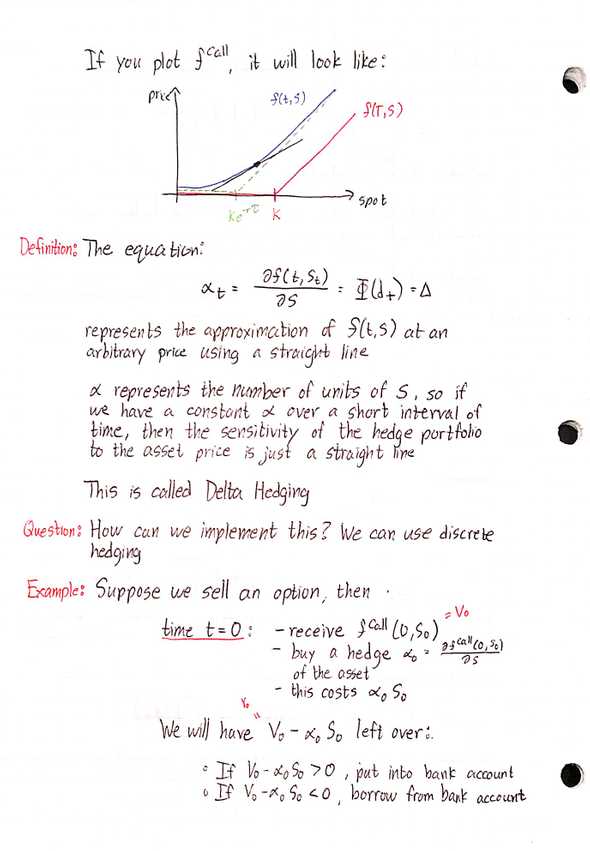 If you plot f^call, it will look like:
price
f(t,S)
f(T,S)
Ke^-rτ
K
spot
Definition: The equation:
α_t = ∂f(t,S_t)/∂S = Φ(d_+) = Δ
represents the approximation of f(t,S) at an
arbitrary price using a straight line
α represents the number of units of S, so if
we have a constant α over a short interval of
time, then the sensitivity of the hedge portfolio
to the asset price is just a straight line
This is called Delta Hedging
Question: How can we implement this? We can use discrete
hedging
Example: Suppose we sell an option, then
time t=0: - receive f^call(0,S_0) = V_0
- buy a hedge α_0 = ∂f^call(0,S_0)/∂S
of the asset
- this costs α_0 S_0
We will have V_0 - α_0 S_0 left over:
◦ If V_0 - α_0 S_0 > 0, put into bank account
◦ If V_0 - α_0 S_0 < 0, borrow from bank account